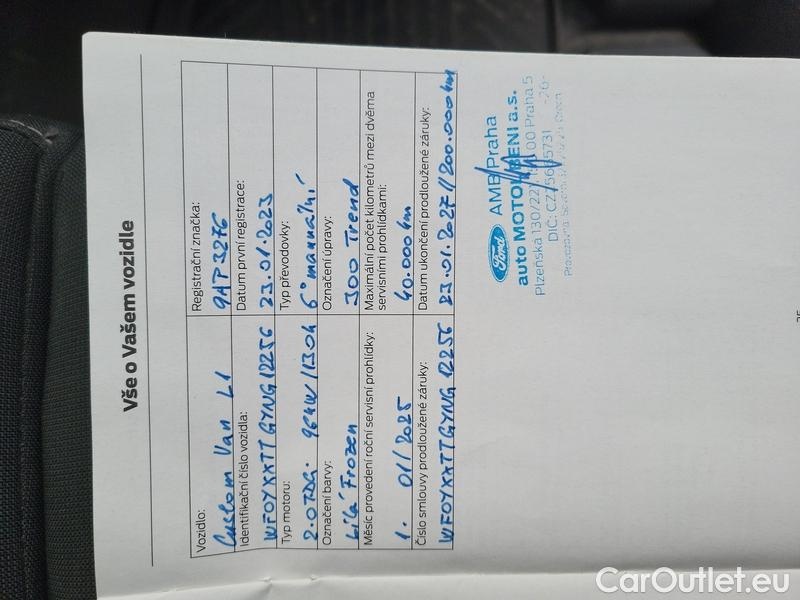 Vše o Vašem vozidle
Vozidlo:
Custom Van L1
Registrační značka:
9AP3276
Identifikační číslo vozidla:
WF0YXXTTGYNG12256
Datum první registrace:
23.01.2023
Typ motoru:
2.0TDCi 96kW/130k
Typ převodovky:
6° manuální
Označení barvy:
bílá Frozen
Označení úpravy:
300 Trend
Měsíc provedení roční servisní prohlídky:
1. 01/2025
Maximální počet kilometrů mezi dvěma
servisními prohlídkami:
40.000km
Číslo smlouvy prodloužené záruky:
WF0YXXTTGYNG12256
Datum ukončení prodloužené záruky:
23.01.2027//200.000km
Ford
AMB Praha
auto MOTOL BENI a.s.
Plzeňská 130/221, 00 Praha 5
DIČ: -26-
Provozovna:
CarOutlet.eu